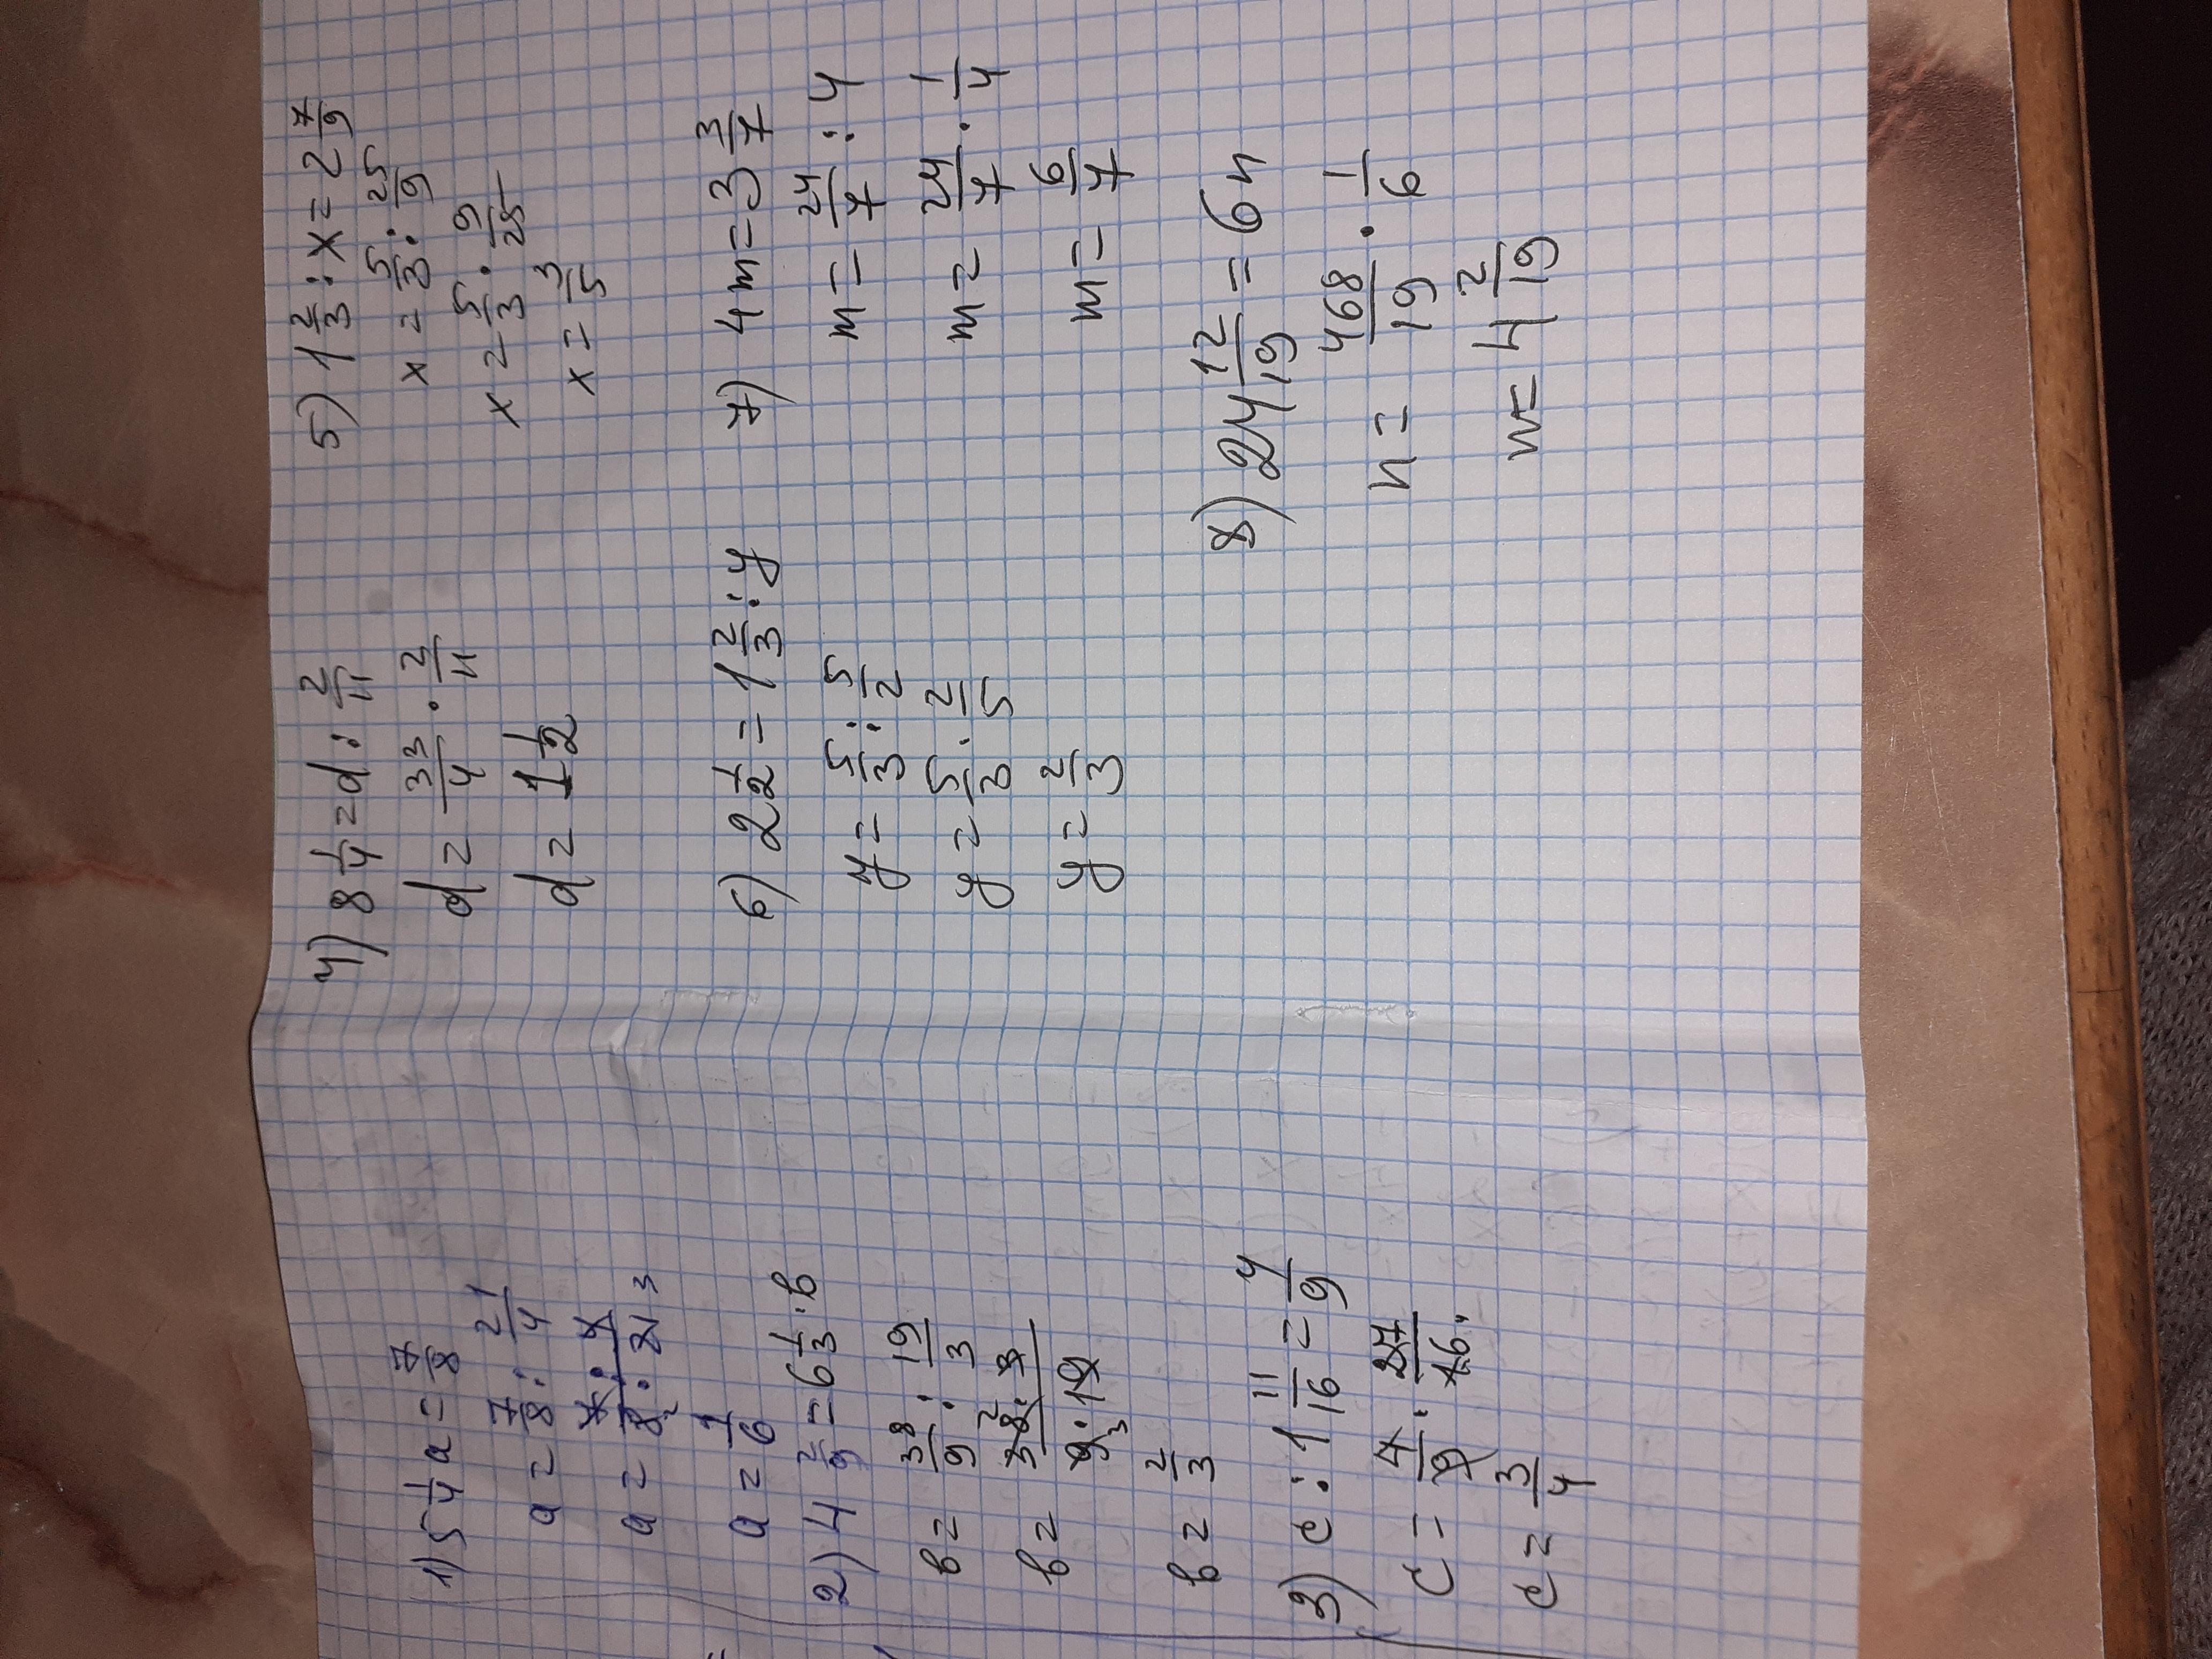 1) 5 1/4 a = 7/8
a = 7/8 : 21/4
a = 7·4/8·21 2 3
a = 1/6
2) 4 2/9 = 6 1/3 · b
b = 38/9 : 19/3
b = 38·3/9·19 2 3
b = 2/3
3) c : 1 11/16 = 4/9
c = 4/9 · 27/16.
c = 3/4
4) 8 1/4 = d : 2/11
d = 33/4 · 2/11
d = 1 1/2
5) 1 2/3 : x = 2 7/9
x = 5/3 : 25/9
x = 5/3 · 9/25
x = 3/5
6) 2 1/2 = 1 2/3 : y
y = 5/3 : 5/2
y = 5/3 · 2/5
y = 2/3
7) 4m = 3 3/7
m = 24/7 : 4
m = 24/7 · 1/4
m = 6/7
8) 24 12/19 = 6n
n = 468/19 · 1/6
n = 4 2/19